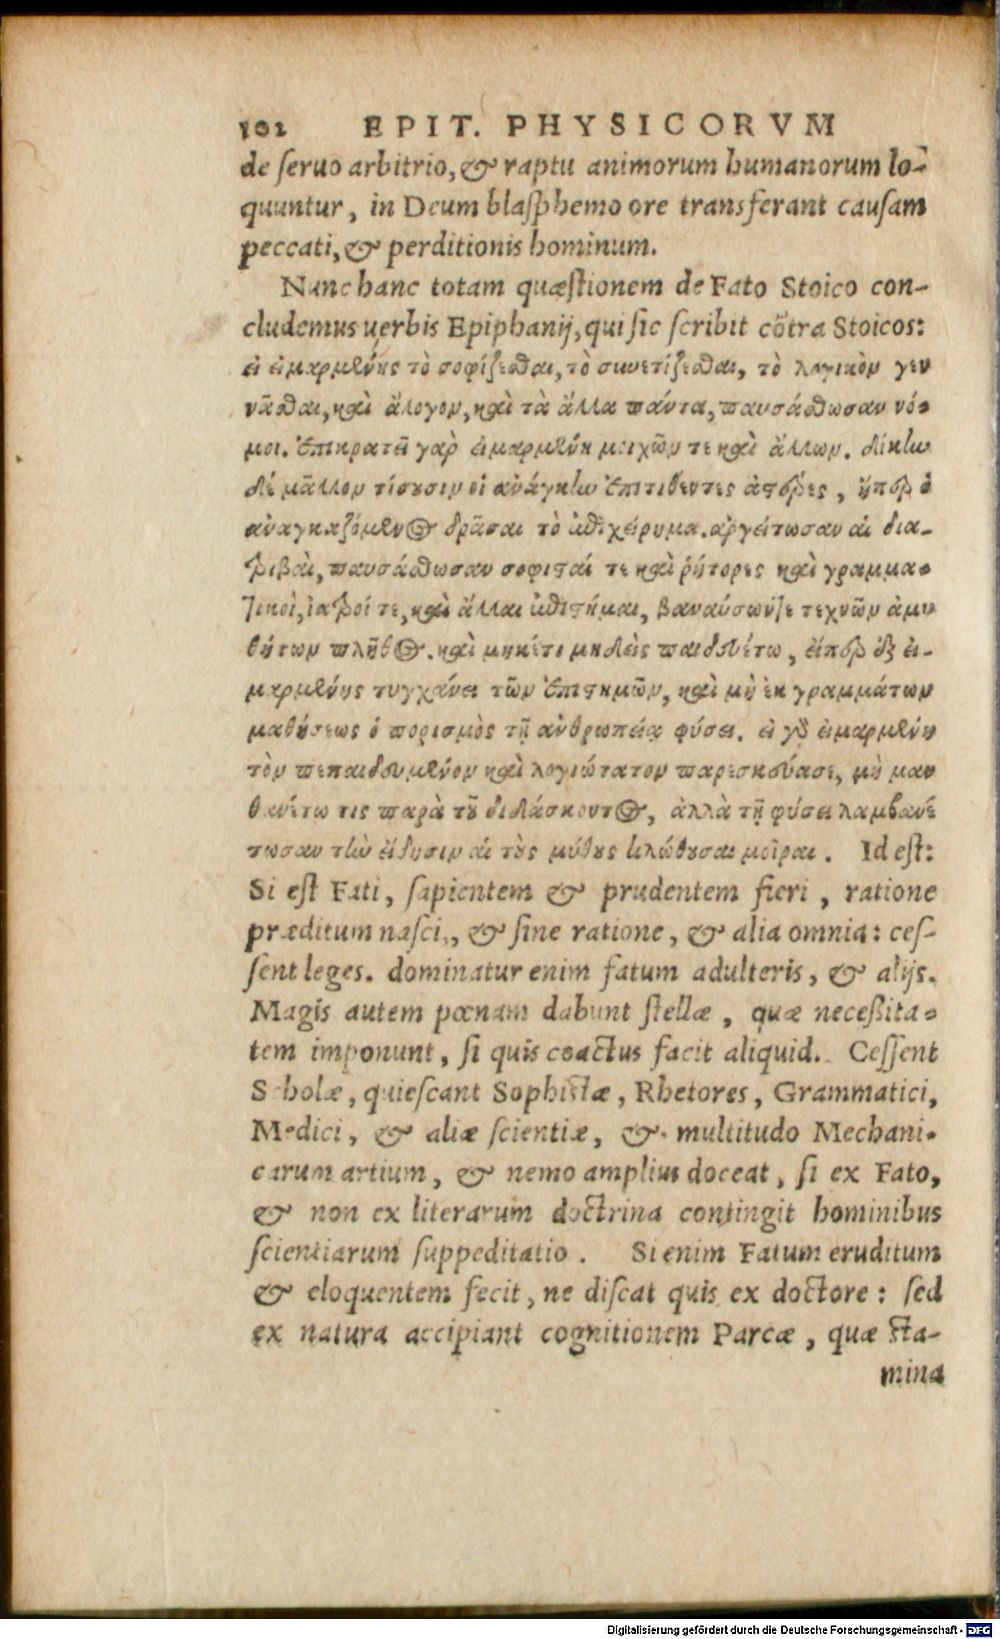 102 EPIT. PHYSICORVM
de ſeruo arbitrio, & raptu animorum humanorum lo-
quuntur, in Deum blaſphemo ore transferant cauſam
peccati, & perditionis hominum.
Nunc hanc totam quæſtionem de Fato Stoico con-
cludemus uerbis Epiphanij, qui ſic ſcribit cõtra Stoicos:
εἰ εἱμαρμένης τὸ σοφίζεσθαι, τὸ συνετίζεσθαι, τὸ λογικὸν γεν
νᾶσθαι, καὶ ἄλογον, καὶ τὰ ἄλλα πάντα, παυσάσθωσαν νό-
μοι. ἐπικρατεῖ γὰρ εἱμαρμένη μοιχῶν τε καὶ ἄλλων. δίκην
δὲ μᾶλλον τίσουσιν οἱ ἀνάγκην ἐπιτιθέντες ἀστέρες, ἤπερ ὁ
ἀναγκαζόμενος δρᾶσαι τὸ ἐπιχείρημα. ἀργείτωσαν αἱ δια-
τριβαὶ, παυσάσθωσαν σοφισταί τε καὶ ῥήτορες καὶ γραμμα-
τικοὶ, ἰατροί τε, καὶ ἄλλαι ἐπιστῆμαι, βαναύσων τε τεχνῶν ἀμυ
θήτων πλῆθος. καὶ μηκέτι μηδεὶς παιδευέτω, εἴπερ ἐξ εἱ-
μαρμένης τυγχάνει τῶν ἐπιστημῶν, καὶ μὴ ἐκ γραμμάτων
μαθήσεως ὁ πορισμὸς τῇ ἀνθρωπείᾳ φύσει. εἰ γὰρ εἱμαρμένη
τὸν πεπαιδευμένον καὶ λογιώτατον παρεσκεύασε, μὴ μαν
θανέτω τις παρὰ τοῦ διδάσκοντος, ἀλλὰ τῇ φύσει λαμβανέ
τωσαν τὴν εἴδησιν αἱ τοὺς μύθους κλώθουσαι μοῖραι. Id eſt:
Si eſt Fati, ſapientem & prudentem fieri, ratione
præditum naſci, & ſine ratione, & alia omnia: ceſ-
ſent leges. dominatur enim fatum adulteris, & alijs.
Magis autem pœnam dabunt ſtellæ, quæ neceßita-
tem imponunt, ſi quis coactus facit aliquid. Ceſſent
Scholæ, quieſcant Sophiſtæ, Rhetores, Grammatici,
Medici, & aliæ ſcientiæ, & multitudo Mechani-
carum artium, & nemo amplius doceat, ſi ex Fato,
& non ex literarum doctrina contingit hominibus
ſcientiarum ſuppeditatio. Si enim Fatum eruditum
& eloquentem fecit, ne diſcat quis ex doctore: ſed
ex natura accipiant cognitionem Parcæ, quæ ſta-
mina
Digitalisierung gefördert durch die Deutsche Forschungsgemeinschaft - DFG